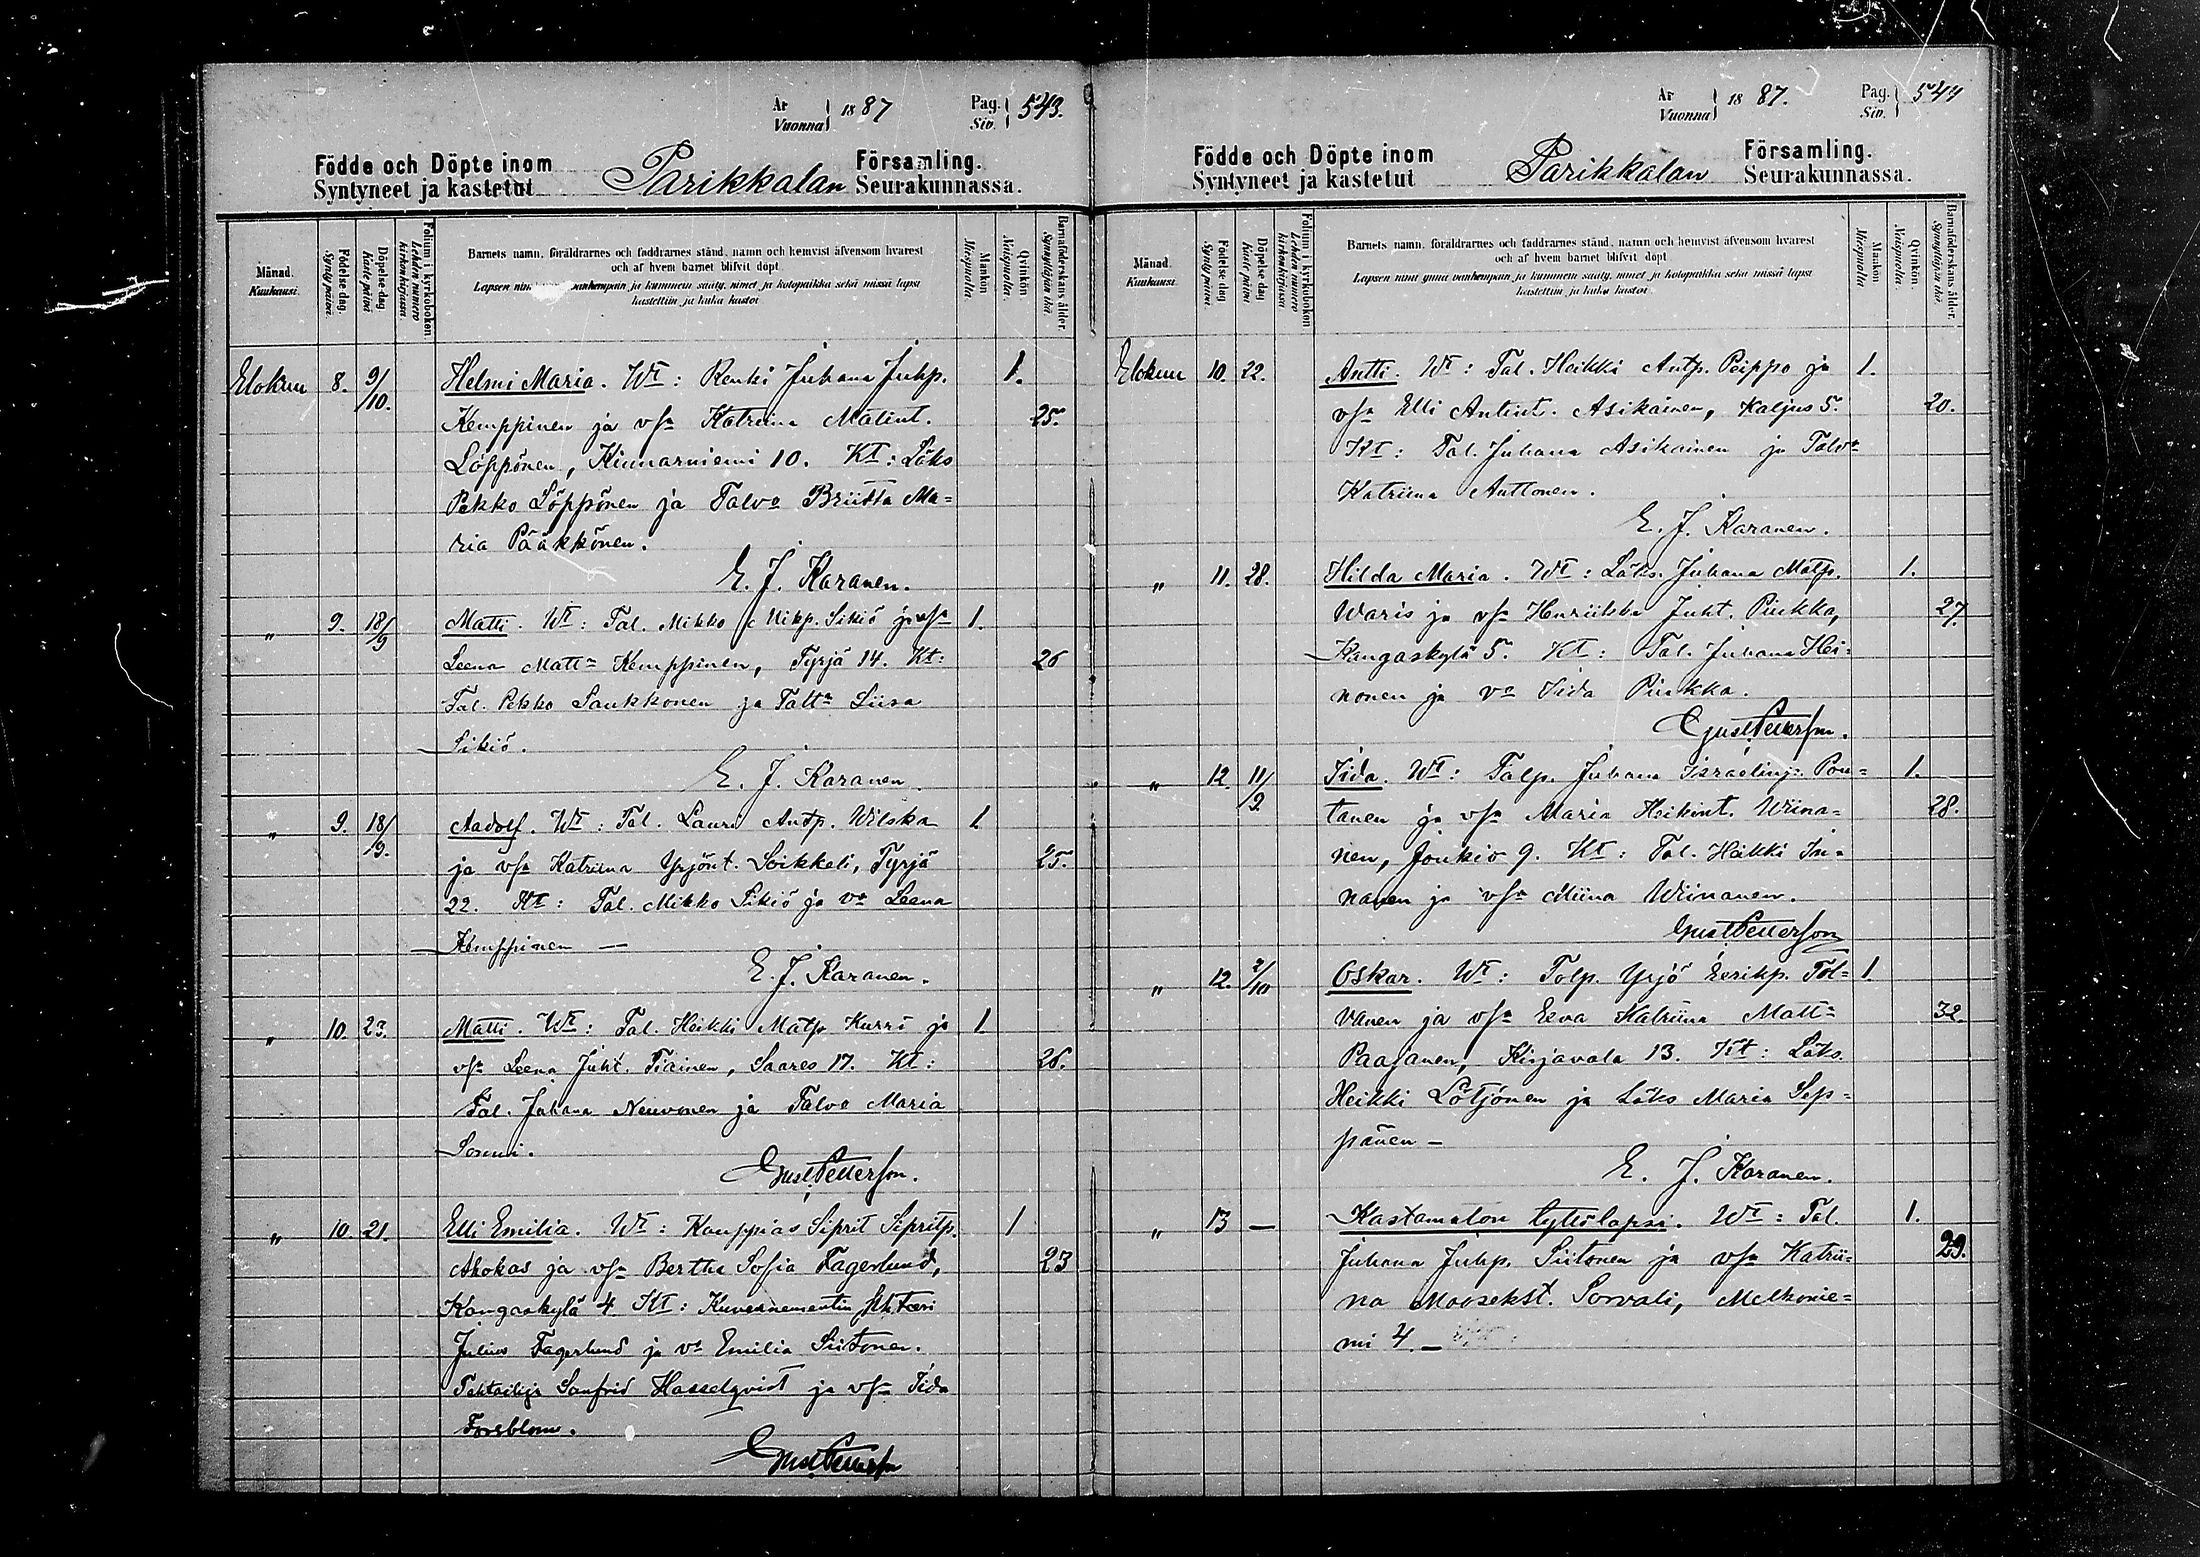 År Vuonna 1887 Pag. Siv. 543.
Födde och Döpte inom Parikkalan Församling.
Syntyneet ja kastetut Seurakunnassa.
Månad. Kuukausi.
Födelse dag. Synty päivä.
Döpelse dag Kaste päivä
Folium i kyrkoboken Lehden numero kirkonkirjassa.
Barnets namn, föräldrarnes och faddrarnes stånd, namn och hemvist äfvensom hvarest
och af hvem barnet blifvit döpt.
Lapsen nimi vanhempain ja kummein sääty, nimet ja kotopaikka sekä missä lapsi
kastettiin ja kuka kastoi
Mankön Miespuolta
Qvinkön. Naispuolta.
Barnaföderskans ålder. Synnyttäjän ikä.
Elokuu 8. 9/10. Helmi Maria. Wt: Renki Juhana Juhp. 1.
Kemppinen ja vsa Katriina Matint. 25.
Löppönen, Kinnarniemi 10. Kt: Läks
Pekko Löppönen ja Talvo Briitta Ma=
ria Pääkkönen.
E. J. Karanen.
„ 9. 18/9 Matti. Wt: Tal. Mikko Mikp. Sikiö ja vsa 1.
Leena Matt= Kemppinen, Tyrjä 14. Kt: 26
Tal. Pekko Saukkonen ja Talt= Liisa
Sikiö.
E. J. Karanen.
„ 9. 18/9. Aadolf. Wt: Tal. Lauri Antp. Wilska 1.
ja vsa Katriina Yrjönt. Soikkeli, Tyrjä 25.
22. Kt: Tal. Mikko Sikiö ja vo Leena
Kemppinen —
E. J. Karanen.
„ 10. 23. Matti. Wt: Tal. Heikki Matp. Kurri ja 1.
vsa Leena Juht. Tiainen, Saares 17. Kt: 26.
Tal. Juhana Neuvonen ja Talvo Maria
Sormi.
Gust Petterson.
„ 10. 21. Elli Emilia. Wt: Kauppias Siprit Sipritp. 1
Ahokas ja vsa Bertha Sofia Fagerlund, 23
Kangaskylä 4 Kt: Kuvernementin
Julius Fagerlund ja vo Emilia Siitonen.
Tehtailija Sanfrid Hasselqvist ja vsa Iida
Forsblom.
Gust Petterson
År Vuonna 1887. Pag. Siv. 544
Födde och Döpte inom Parikkalan Församling.
Syntyneet ja kastetut Seurakunnassa.
Månad. Kuukausi.
Födelse dag Synty päivä.
Döpelse dag Kaste päivä
Folium i kyrkoboken Lehden numero kirkonkirjassa
Barnets namn, föräldrarnes och faddrarnes stånd, namn och hemvist äfvensom hvarest
och af hvem barnet blifvit döpt
Lapsen nimi ynnä vanhempain ja kummein sääty, nimet ja kotopaikka sekä missä lapsi
kastettiin ja kuka kastoi
Mankön Miespuolta
Qvinkön. Naispuolta.
Barnaföderskans ålder. Synnyttäjän ikä.
Elokuu 10. 22. Antti. Wt: Tal. Heikki Antp. Peippo ja 1.
vsa Elli Antint. Asikainen, Kaljus 5. 20.
Kt: Tal. Juhana Asikainen ja Talvo
Katriina Anttonen.
E. J. Karanen.
„ 11. 28. Hilda Maria. Wt: Läks. Juhana Matp. 1.
Waris ja vsa Henriikka Juht. Pirkka, 27.
Kangaskylä 5. Kt: Tal. Juhana Hei=
nonen ja vo Iida Pirkka.
Gust Petterson.
„ 12. 11/9. Iida. Wt: Talp. Juhana Israelinp. Pon= 1.
tanen ja vsa Maria Heikint. Wiina= 28.
nen, Joukio 9. Kt: Tal. Heikki In=
nanen ja vsa Miina Wiinanen.
Gust Petterson
„ 12. 2/10 Oskar. Wt: Talp. Yrjö Eerikp. Tol= 1.
vanen ja vsa Eeva Katriina Matt= 32.
Paajanen, Kirjavala 13. Kt: Läks.
Heikki Lötjönen ja Läks Maria Sep=
pänen —
E. J. Karanen.
„ 13 — Kastamaton tyttölapsi. Wt: Tal. 1.
Juhana Juhp. Siitonen ja vsa Katrii= 29.
na Moosekst. Sorvali, Melkonie=
mi 4. —